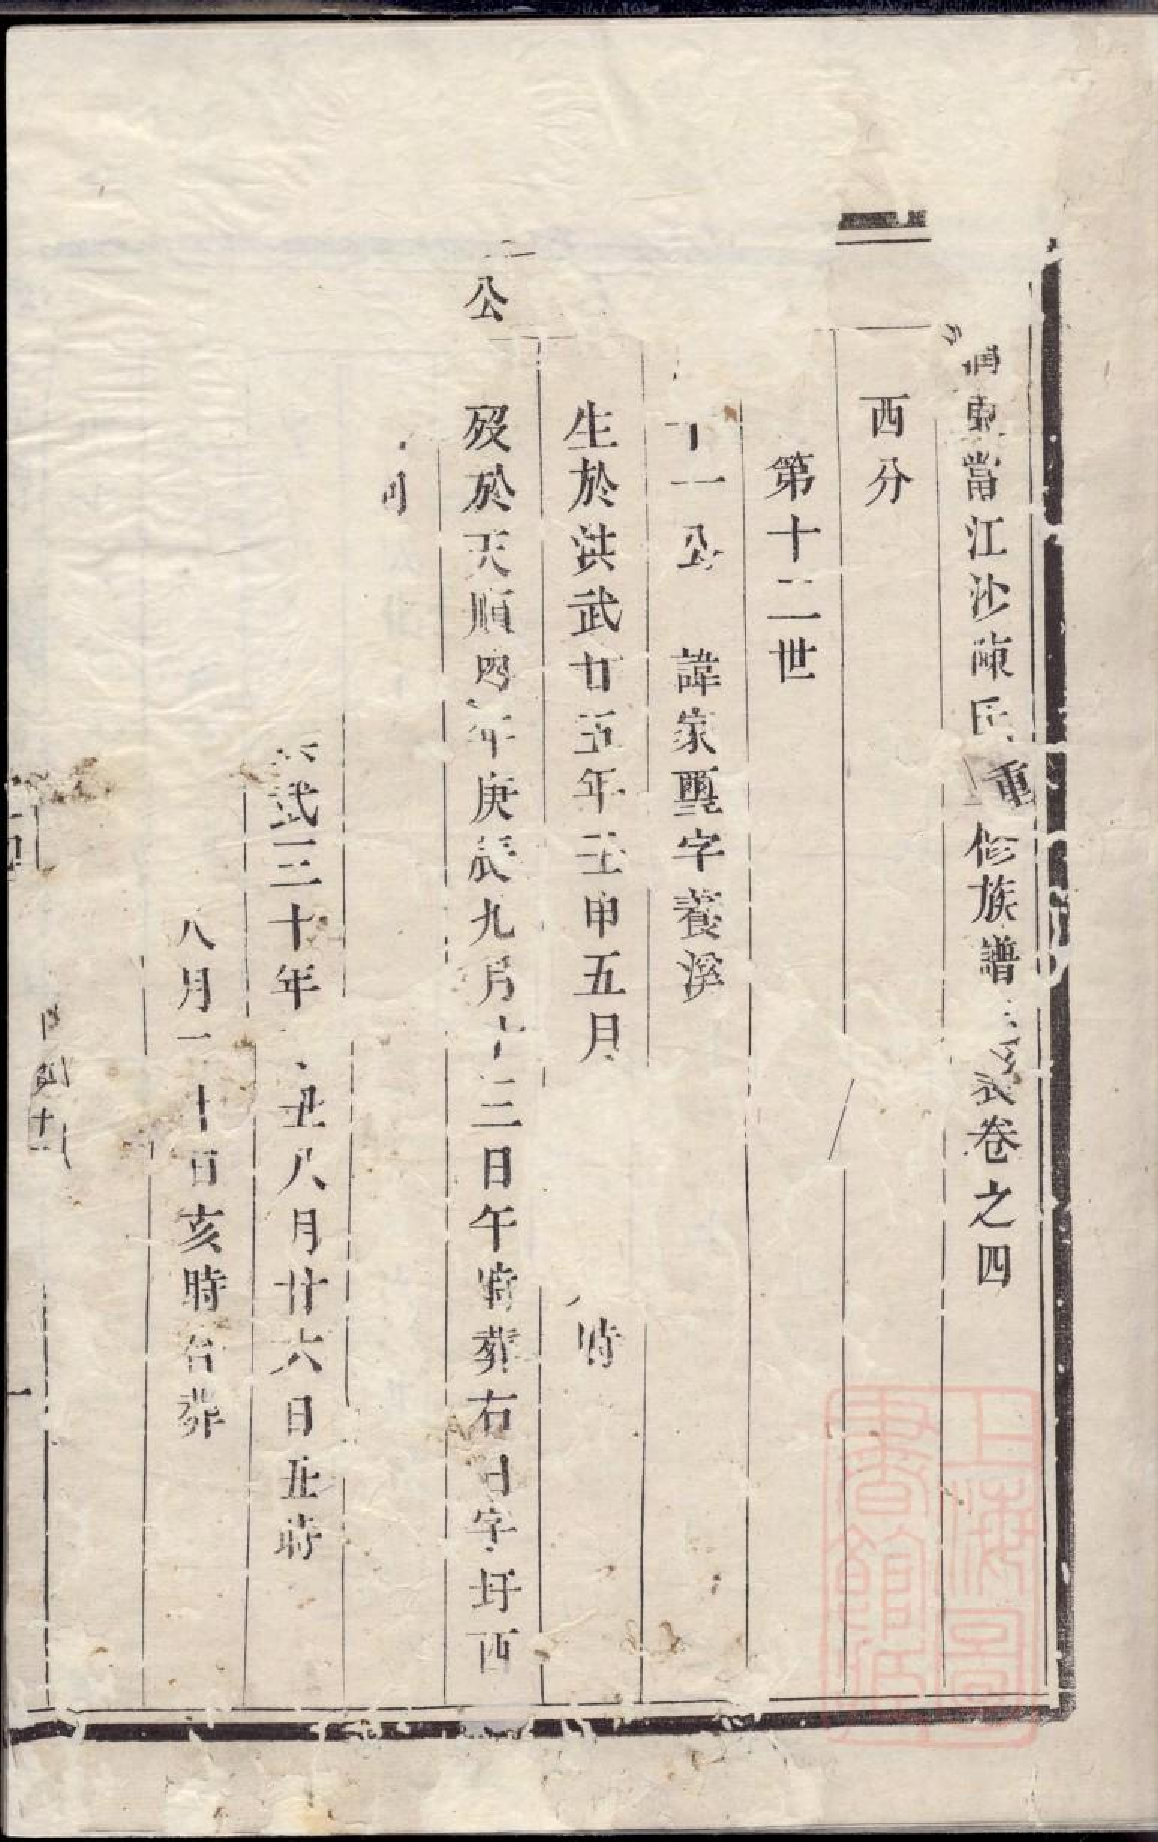 東當江沙陳氏重修族譜 表卷之四
西分
第十二世
十一公 諱家璽字養溪
生於洪武廿五年壬申五月 時
公 歿於天順四年庚辰九月十三日午時葬右 字圩西
武三十年 丑八月廿六日丑時
八月 十日亥時合葬
一
上海圖書館藏